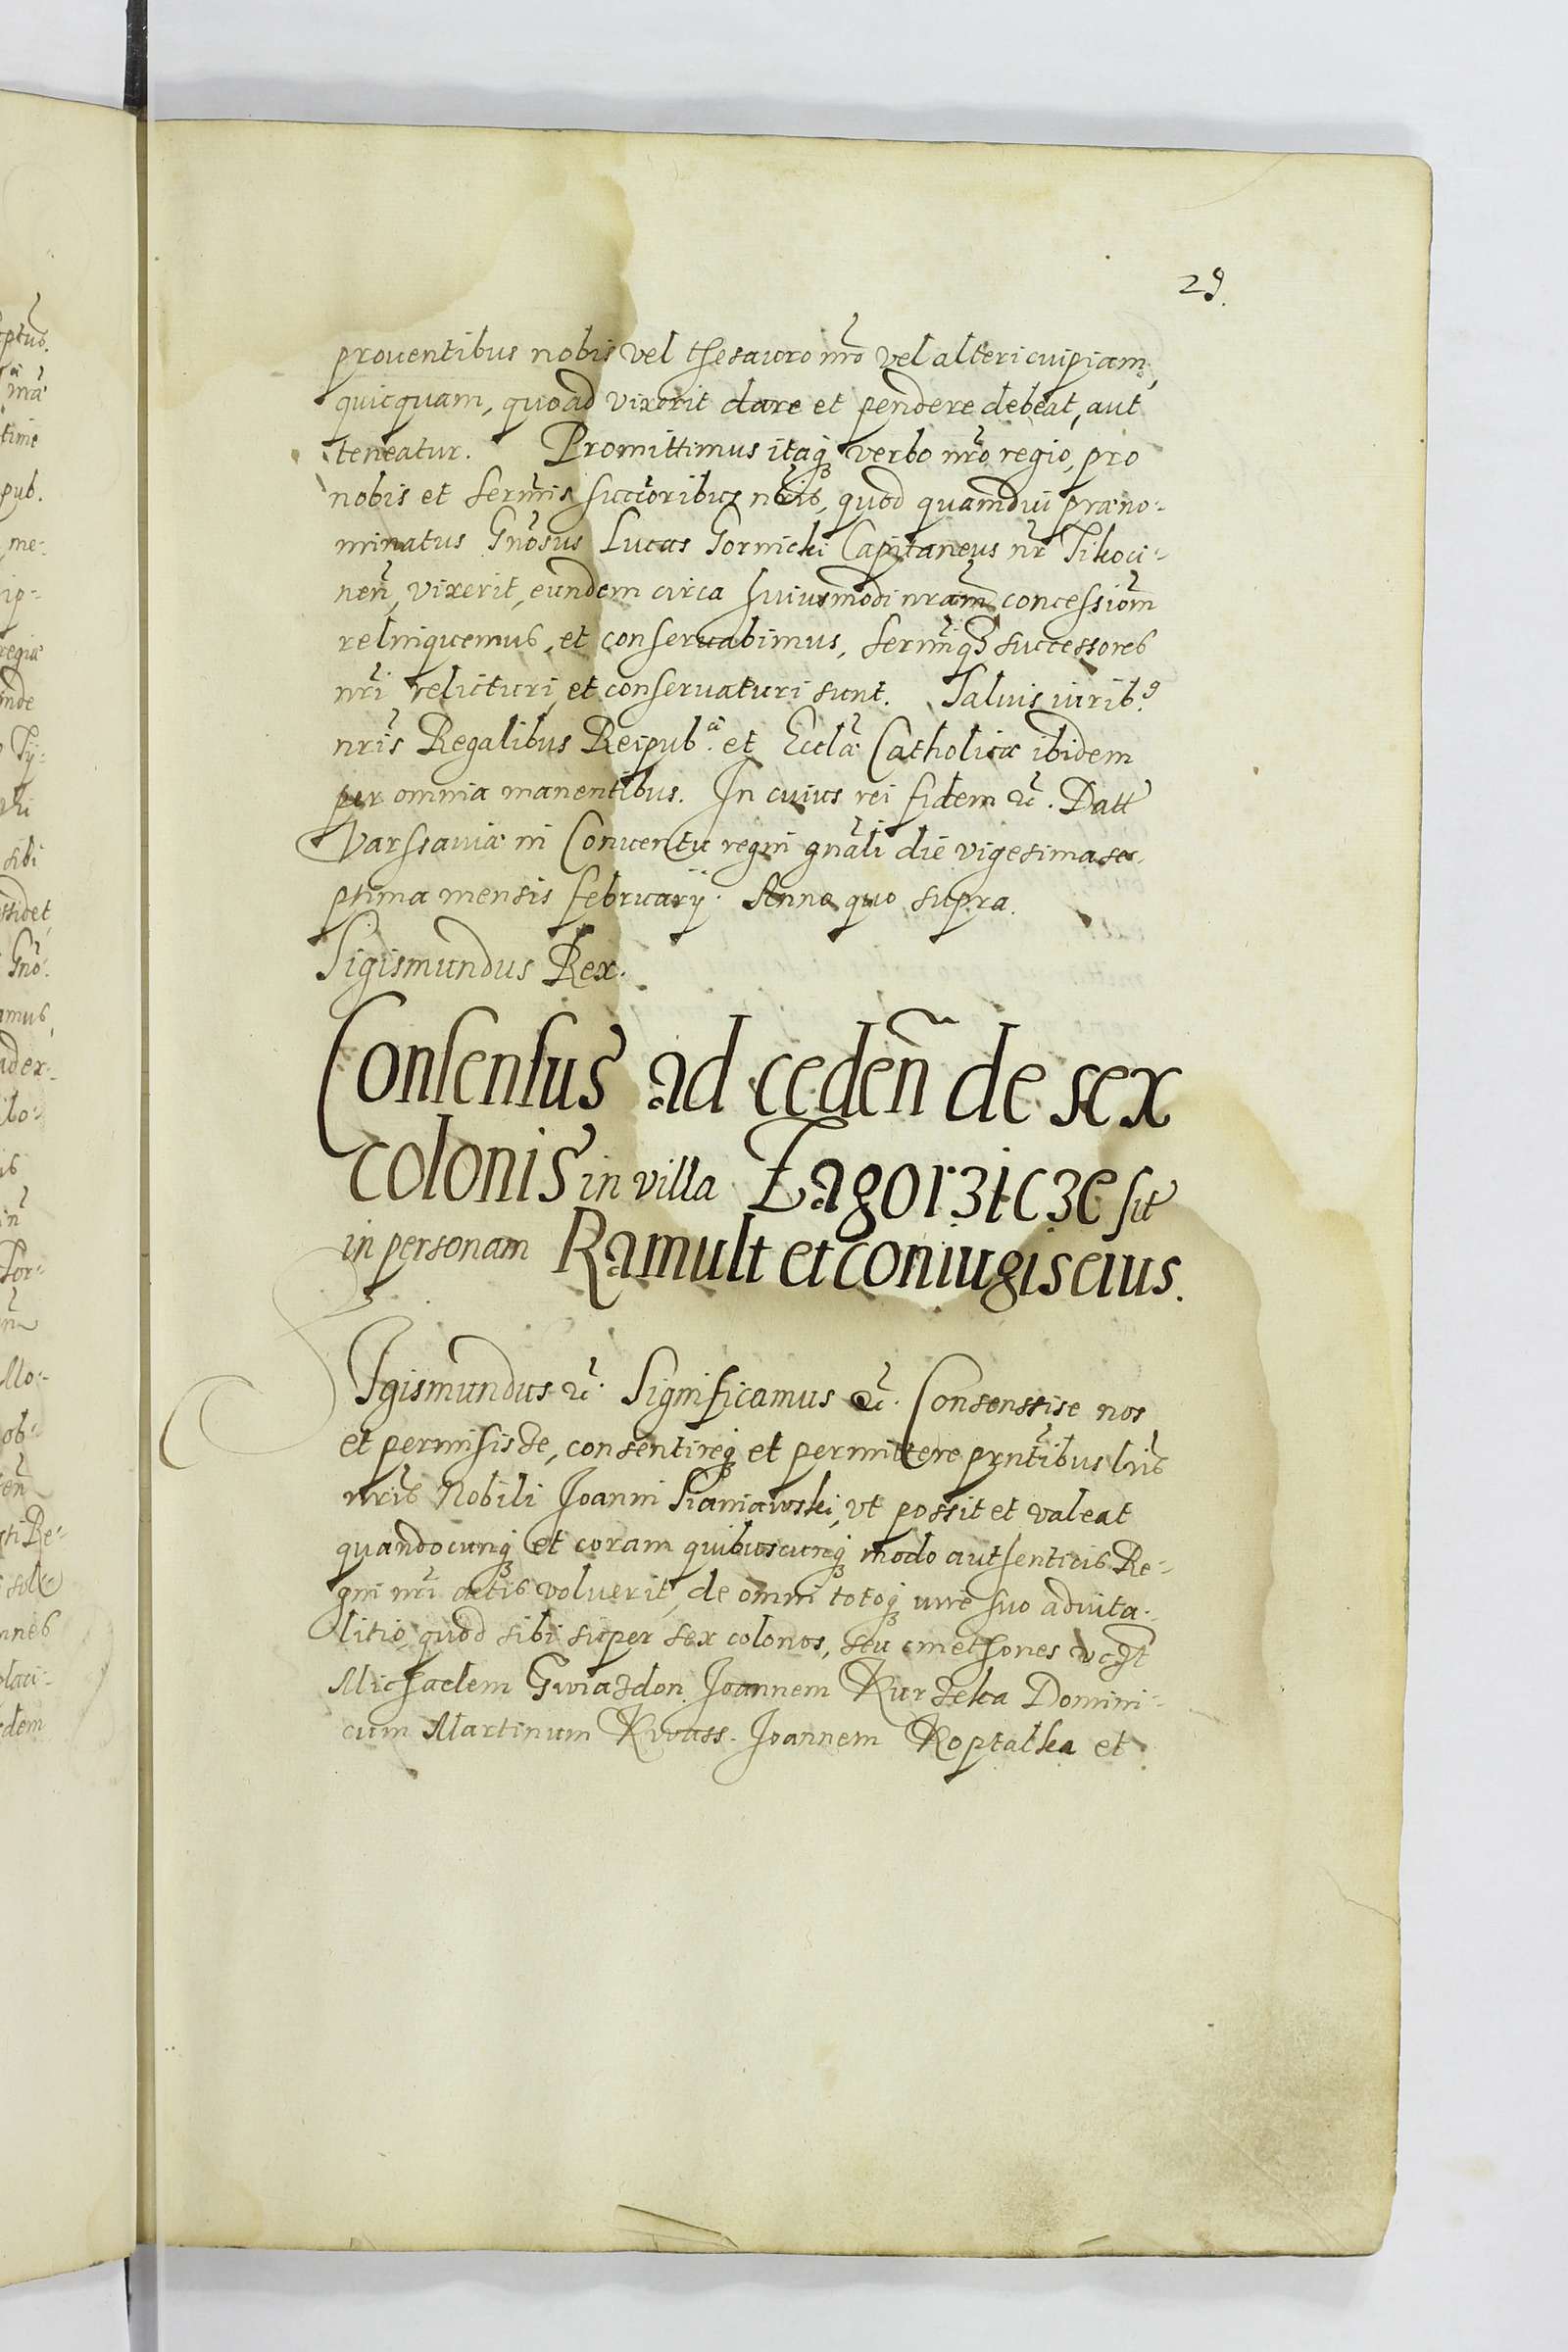 29.
prouentibus nobis vel thesauro nro vel alteri cuipiam,
quicquam, quoad vixerit dare et pendere debeat, aut
teneatur. Promittimus itaq₃ verbo nro regio, pro
nobis et sermis succoribus nris, quod quamdiu præno-
minatus Gnosus Lucas Gornicki Capitaneus nr Tikoci-
nen, vixerit, eundem circa huiusmodi nram concessiom
relinquemus, et conseruabimus, sermiq₃ successores
nri relicturi, et conseruaturi sunt. Saluis iurib.⁹
nris Regalibus Reipub.æ et Eccla Catholicæ ibidem
per omnia manentibus. In cuius rei fidem &c. Datt
Varssauiæ in Conuentu regni gnali die vigesima se-
ptima mensis februarij. Anno quo supra.
Sigismundus Rex.
Consensus ad ceden de sex
colonis in villa Zagorzicze sit
in personam Ramult et coniugis eius.
Sigismundus &c. Significamus &c. Consensisse nos
et permisisse, consentireq₃ et permittere prntibus lris
nris Nobili Joanni Sianiawski, vt possit et valeat
quandocunq₃ et coram quibuscunq₃ modo authenticis Re-
gni nri actis voluerit, de omni totoq₃ iure suo aduita-
litio, quod sibi super sex colonos, seu cmethones
Michaelem Gwiazdon Joannem Kurzelka Domini-
cum Martinum Kwass. Joannem Koptalka et
ptus.
nra
time
pub.
me-
ip-
regiæ
Tÿ-
sibi
ssidet
Gno
amus,
adex-
lbo-
is
Tor-
Mo-
ob-
en
sti Re-
nnes
placi-
dem